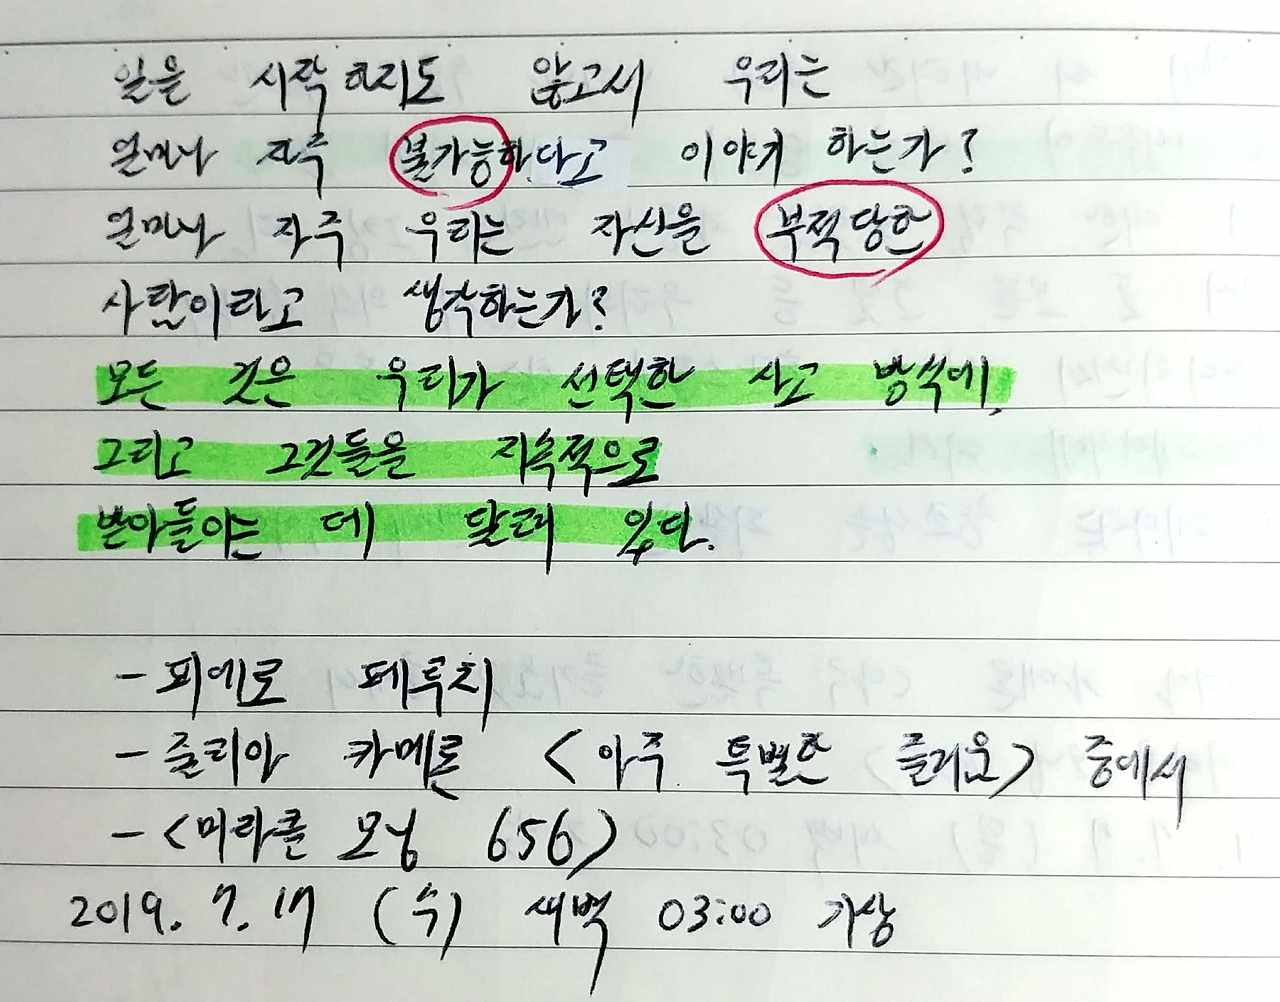 일을 시작하지도 않고서 우리는
얼마나 자주 불가능하다고 이야기 하는가?
얼마나 자주 우리는 자신을 부적당한
사람이라고 생각하는가?
모든 것은 우리가 선택한 사고 방식에,
그리고 그것들을 지속적으로
받아들이는 데 달려 있다.
- 피에로 페루치
- 줄리아 카메론 <아주 특별한 즐거움> 중에서
- <미라클 모닝 656>
2019. 7. 17 (수) 새벽 03:00 기상